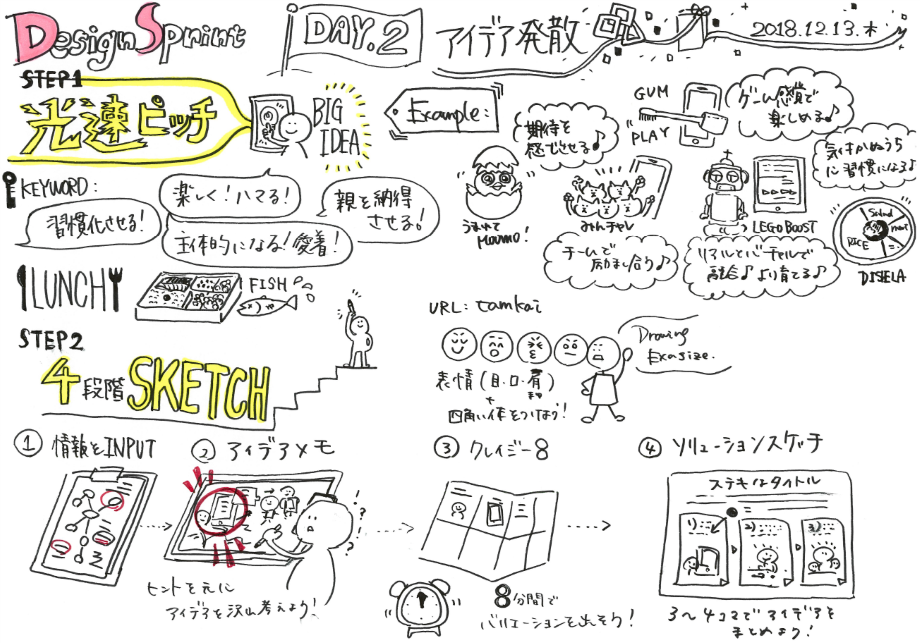 Design Sprint
DAY.2
アイデア発散
2018.12.13.木
STEP1
光速ピッチ
BIG
IDEA
Example:
期待を
感じさせる♪
うまれて
GUM
PLAY
ゲーム感覚で
楽しめる♪
みんチャレ
チームで
励まし合う♪
LEGO BOOST
リアルとバーチャルで
融合♪より育てる♪
気付かぬうち
に習慣になる♪
Salad
meat
RICE
DISHLA
KEYWORD:
楽しく!ハマる!
習慣化させる!
主体的になる!愛着!
親を納得
させる。
LUNCH
FISH
STEP2
4段階SKETCH
URL: tamkai
Drawing
Exasize.
表情(目・口・眉)
+
四角い体をつけよう!
① 情報をINPUT
② アイデアメモ
ヒントを元に
アイデアを沢山考えよう!
③ クレイジー8
8分間で
バリエーションを出そう!
④ ソリューションスケッチ
ステキなタイトル
1)
2)
3)
3〜4コマでアイデアを
まとめよう!